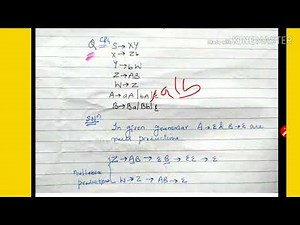 Q CFG S → XY
X → Zb
Y → bW
Z → AB
W → Z
A → aA | bA | ε a|b
B → Ba | Bb | ε
Sol^n In given grammar A → ε & B → ε are
null productions
Z → AB → εB → εε → ε
Nullable
productions W → Z → AB → ε